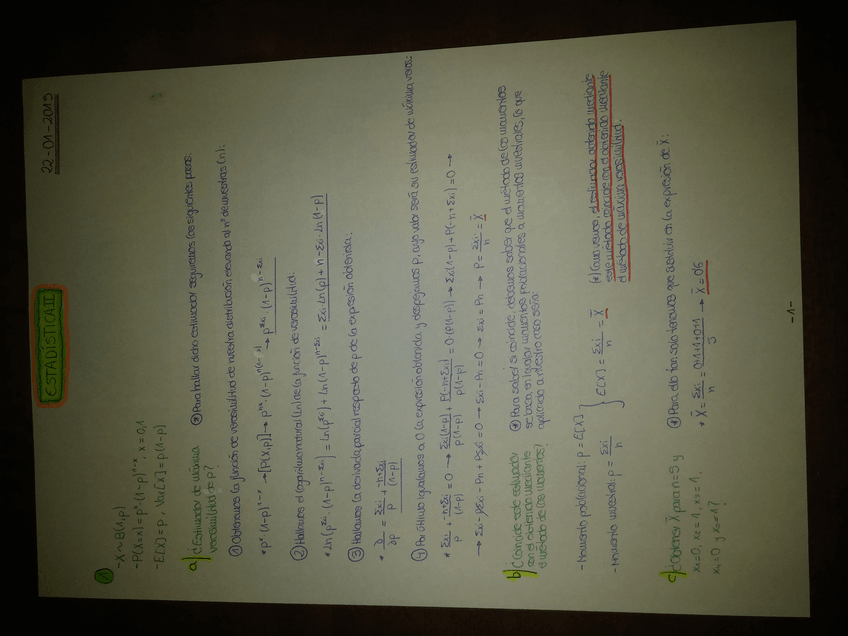 ESTADÍSTICA II
22-01-2019
1
- X ~ B(1,p)
- P(X=x) = pˣ·(1-p)ⁿ⁻ˣ, x=0,1
- E[X] = p · Var[X] = p(1-p)
a) ¿Estimador de máxima
verosimilitud de p?
* Para hallar dicho estimador seguiremos los siguientes pasos:
① Obtenemos la función de verosimilitud de nuestra distribución elevando al nº de muestras (n):
② Hallamos el logaritmo natural (ln) de la función de verosimilitud:
* Ln(p^Σxi · (1-p)^n-Σxi) = Ln(p^Σxi) + Ln(1-p)^n-Σxi = Σxi·Ln(p) + n-Σxi·Ln(1-p)
③ Hallamos la derivada parcial respecto de p de la expresión obtenida:
* ∂/∂p = Σxi/p + -n+Σxi/(1-p)
④ Por último igualamos a 0 la expresión obtenida y despejamos p, cuyo valor será su estimador de máxima veros.:
* Σxi/p + -n+Σxi/(1-p) = 0 → Σxi(1-p)/p(1-p) + P(-n+Σxi)/p(1-p) = 0·(P(1-p)) → Σxi(1-p)+P(-n+Σxi)=0 →
→ Σxi-PΣxi-Pn+PΣxi=0 → Σxi-Pn=0 → Σxi=Pn → P= Σxi/n = X̄
b) ¿Coincide este estimador
con el obtenido mediante
el método de los momentos?
* Para saber si coincide, debemos saber que el método de los momentos
se basa en igualar momentos poblacionales a momentos muestrales, lo que
aplicado a nuestro caso será:
- Momento poblacional: p = E[X]
- Momento muestral: p = Σxi/n
} E[X] = Σxi/n = X̄
(*) Como vemos, el estimador obtenido mediante
este método coincide con el obtenido mediante
el método de máxima verosimilitud.
c) ¿Obtener X̄ para n=5 y
x₁=0, x₂=1, x₃=1,
x₄=0 y x₅=1?
* Para ello tan solo tenemos que sustituir en la expresión de X̄:
* X̄ = Σxi/n = 0+1+1+0+1/5 → X̄ = 0'6
-1-